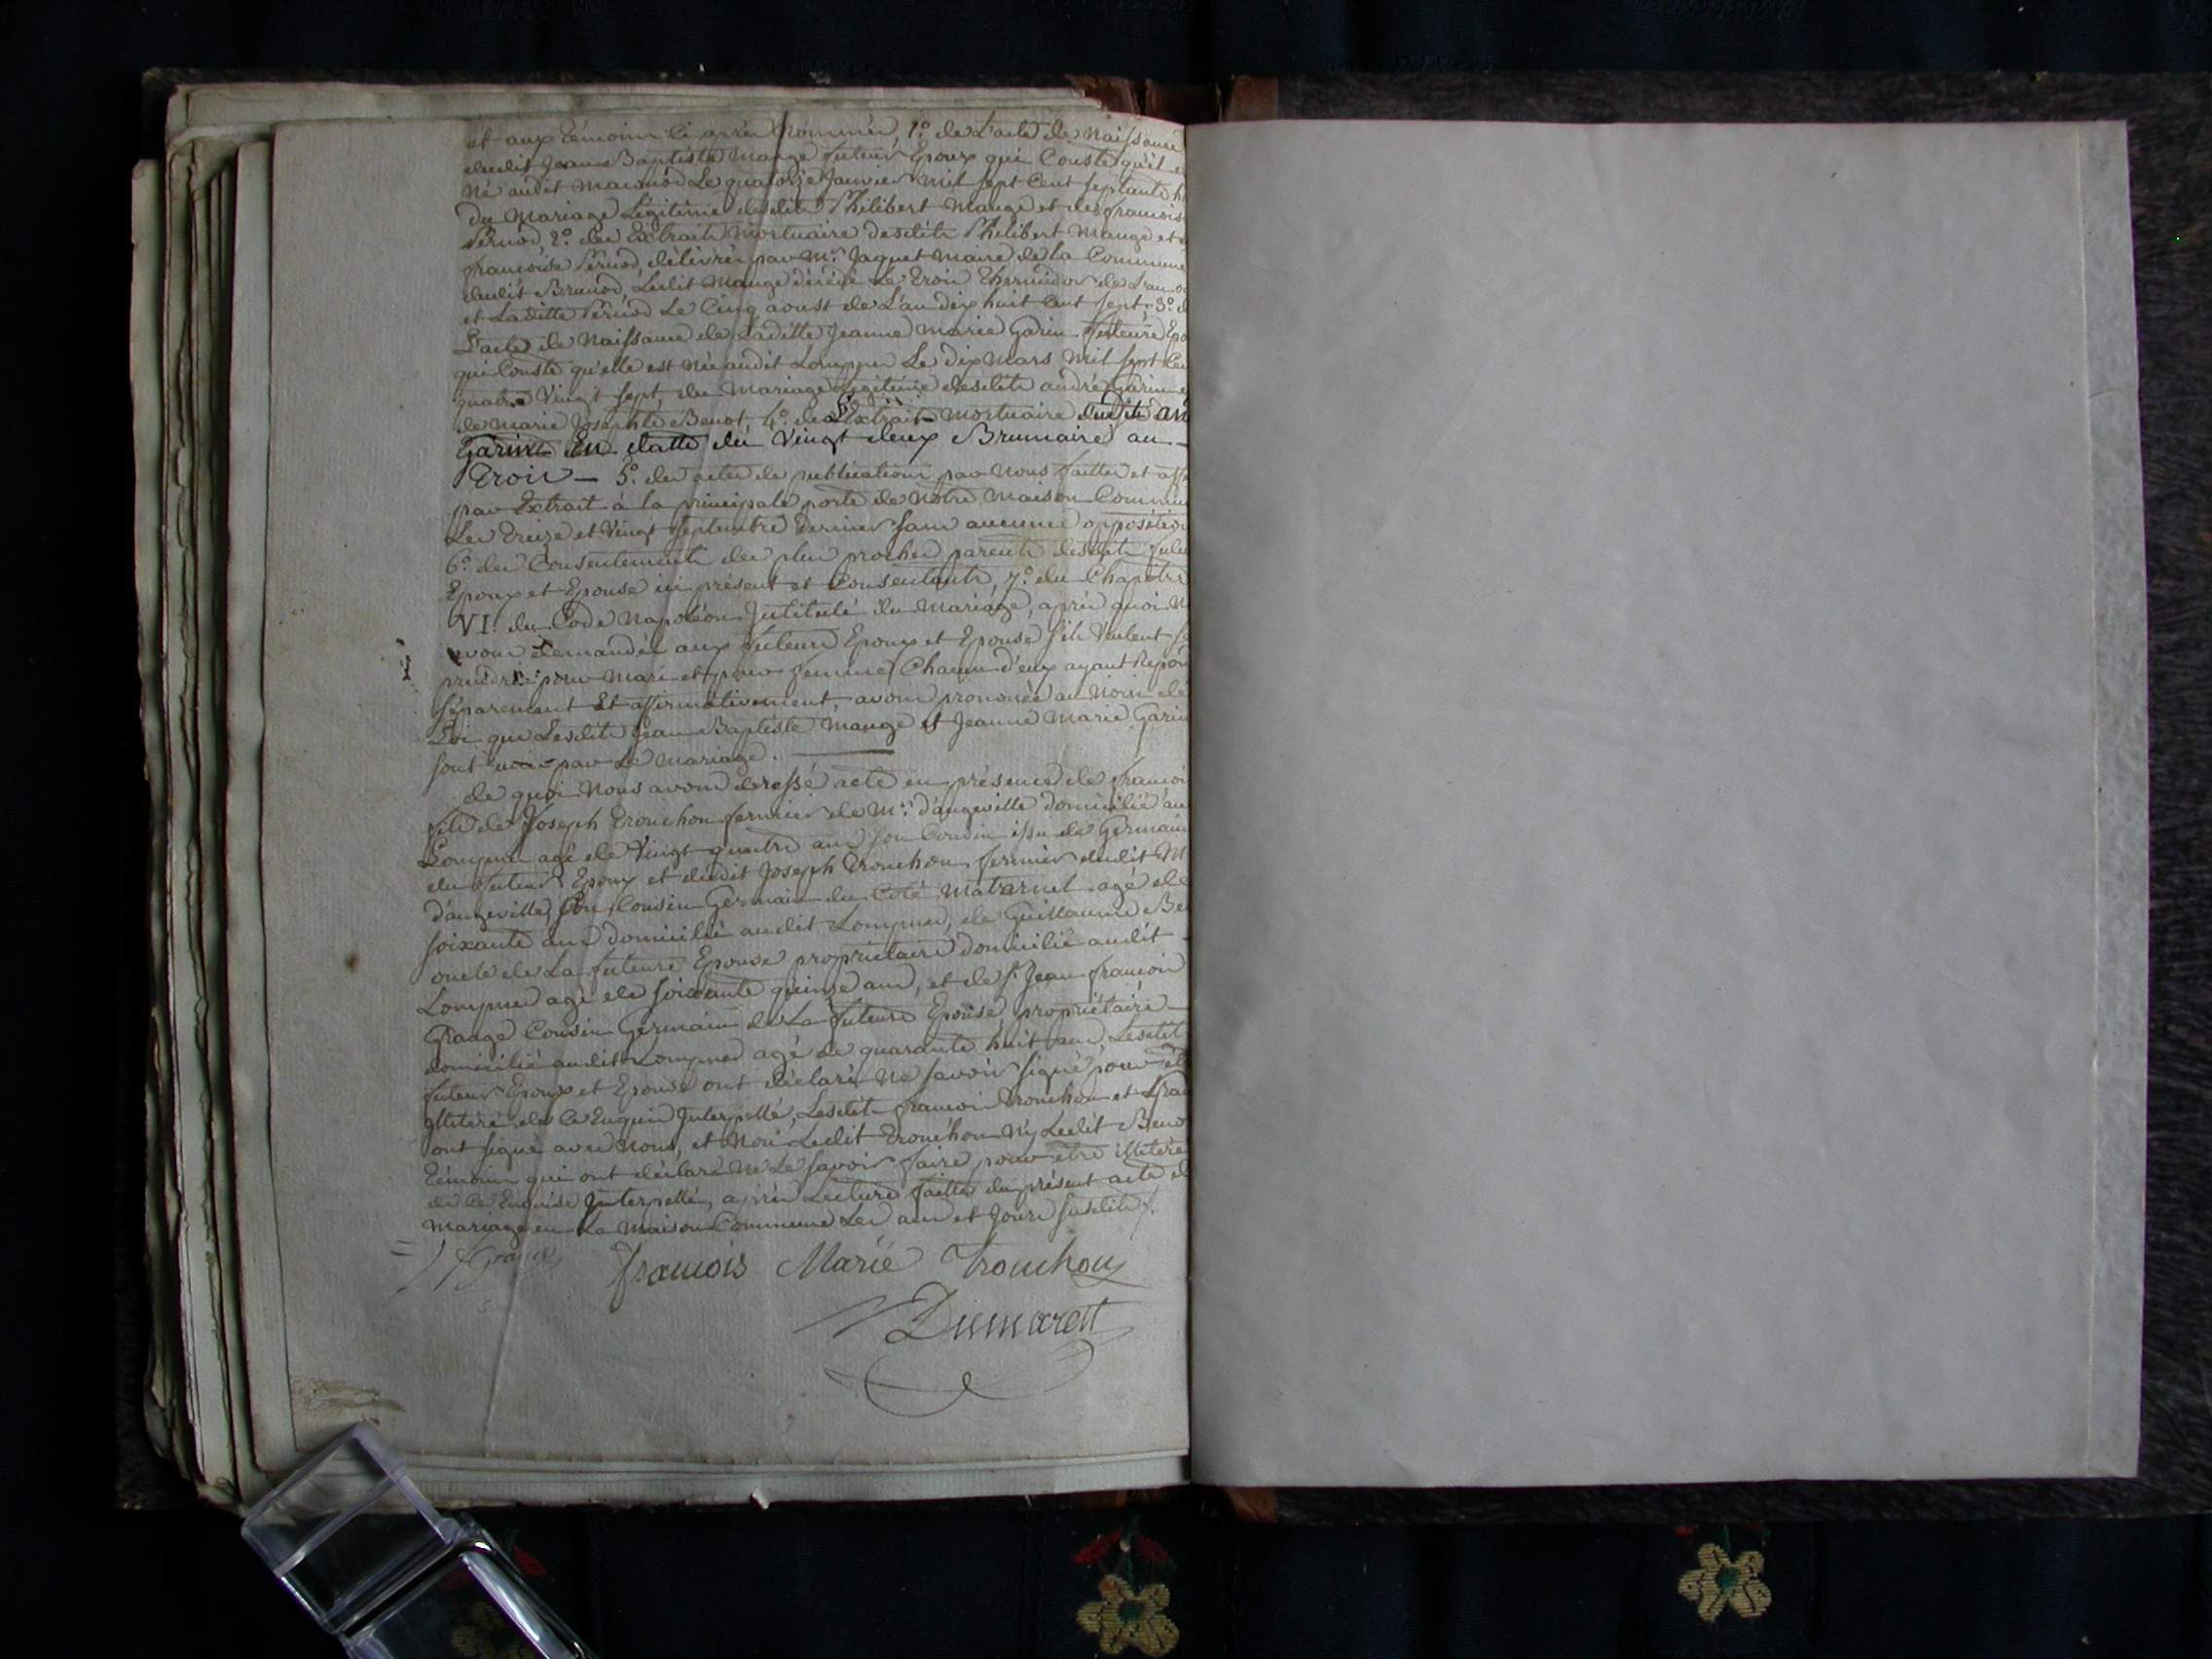 et aux témoins ci après Nommés, 1.º de L'acte de Naissance
dudit Jean Baptiste Mange futeur Epoux qui Conste qu'il e
Né audit Le quatorze Janvier mil sept Cent septante h
du Mariage Légitime desdits Philibert Mange et de francois
Pernod, 2.º des Extraits Mortuaire desdits Philibert Mange et
francoise Pernod, délivrés par M.r Jaquet Maire de la Commune
dudit Brenod, Ledit Mange décédé Le Trois Thermidor de L'an
et Laditte Pernod Le Cinq aoust de L'an dix huit Cent sept, 3.º d
L'acte de Naissance de Laditte Jeanne Marie Garin futeure Epo
qui Conste qu'elle est Née audit Lompnes Le dix Mars Mil sept Ce
quatre Vingt sept, du Mariage Legitime desdits andré Garin e
de Marie Josephte Benot, 4.º de L'Extrait Mortuaire dudit an
Garin En datte du Vingt deux Brumaire an -
Trois - 5.º des actes de publications par Nous faittes et aff
par Extrait à la principale porte de Notre Maison Commun
Les Treize et Vingt septembre Dernier sans aucunes opposition
6.º des Consentements des plus proches parents desdits futeu
Epoux et Epouse ici présent et Consentants, 7.º du Chapitre
VI. du Code Napoléon Jntitulé du Mariage, après quoi N
avons Demandés aux futeurs Epoux et Epouse s'ils Veulent se
prendre pour Mari et pour femme, Chacun d'eux ayant Répon
séparement Et affirmativement, avons prononcé au Nom de
Loi que Lesdits Jean Baptiste Mange et Jeanne Marie Garin
sont unis par Le Mariage.
de quoi Nous avons dressé acte en présence de francois
fils de Joseph Trouchon fermier de M.r d'angeville domicilié au
Lompnes agé de Vingt quatre ans son Cousin issu de Germain
du futeur Epoux et dudit Joseph Trouchon fermier dudit M
d'angeville, son Cousin Germain du Côté Maternel agé de
soixante ans domicilié audit Lompnes, de Guillaume Be
oncle de La futeure Epouse propriétaire domicilié audit
Lompnes agé de soixante quinze ans, et de S.r Jean francois
Grange Cousin Germain de La futeure Epouse, propriétaire
domicilié audit Lompnes agé de quarante huit ans, Lesdit
futeur Epoux et Epouse ont déclarés Ne savoir signé pour êt
illiteré, de Ce Enquis Jnterpellé, Lesdits francois Trouchon et Gran
ont signé avec Nous, et Non Ledit Trouchon Ny Ledit Beno
Témoins qui ont déclaré Ne Le savoir faire pour être illiteré
de Ce Enquis Jnterpellé, après Lecture faitte du présent acte d
Mariage en La Maison Commune Les an et Jour susdits /.
Grange francois Marie Trouchon
Dumarest